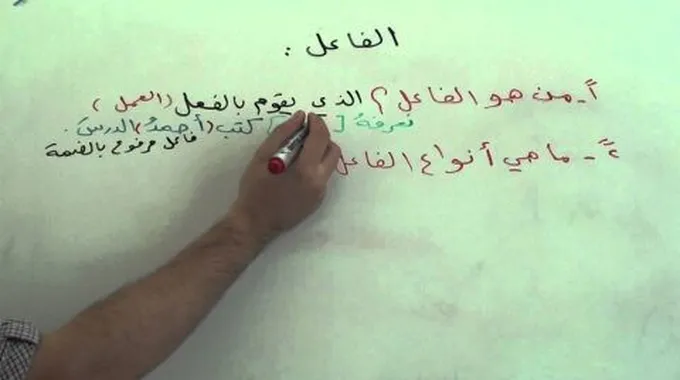 الفاعل :
أ - من هو الفاعل ؟ الذي يقوم بالفعل (العمل)
نعرفهُ [ كتب (أحمدُ) الدرسَ .
فاعل مرفوع بالضمة
٢ً - ما هي أنواع الفاعل